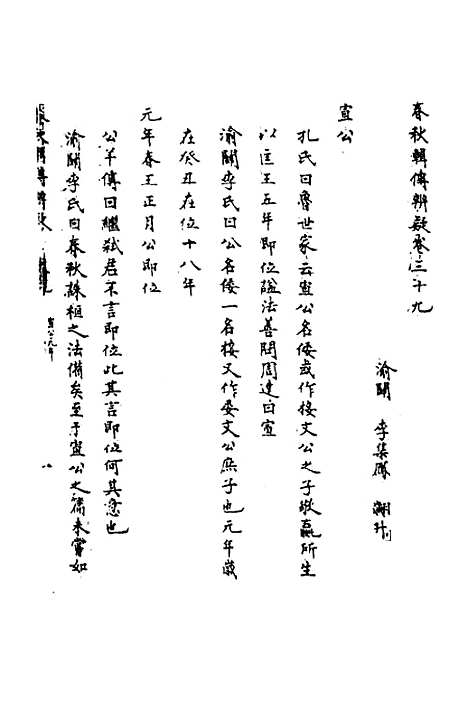 春秋輯傳辨疑卷三十九
渝關 李集鳳 翽升
宣公
孔氏曰魯世家云宣公名倭或作接文公之子敬嬴所生
以匡王五年即位諡法善問周達曰宣
渝關李氏曰公名倭一名接又作委文公庶子也元年歲
在癸丑在位十八年
元年春王正月公即位
公羊傳曰繼弒君不言即位此其言即位何其意也
渝關李氏曰春秋誅桓之法備矣至于宣公之篇未嘗如
春秋輯傳辨疑 宣公元年 一